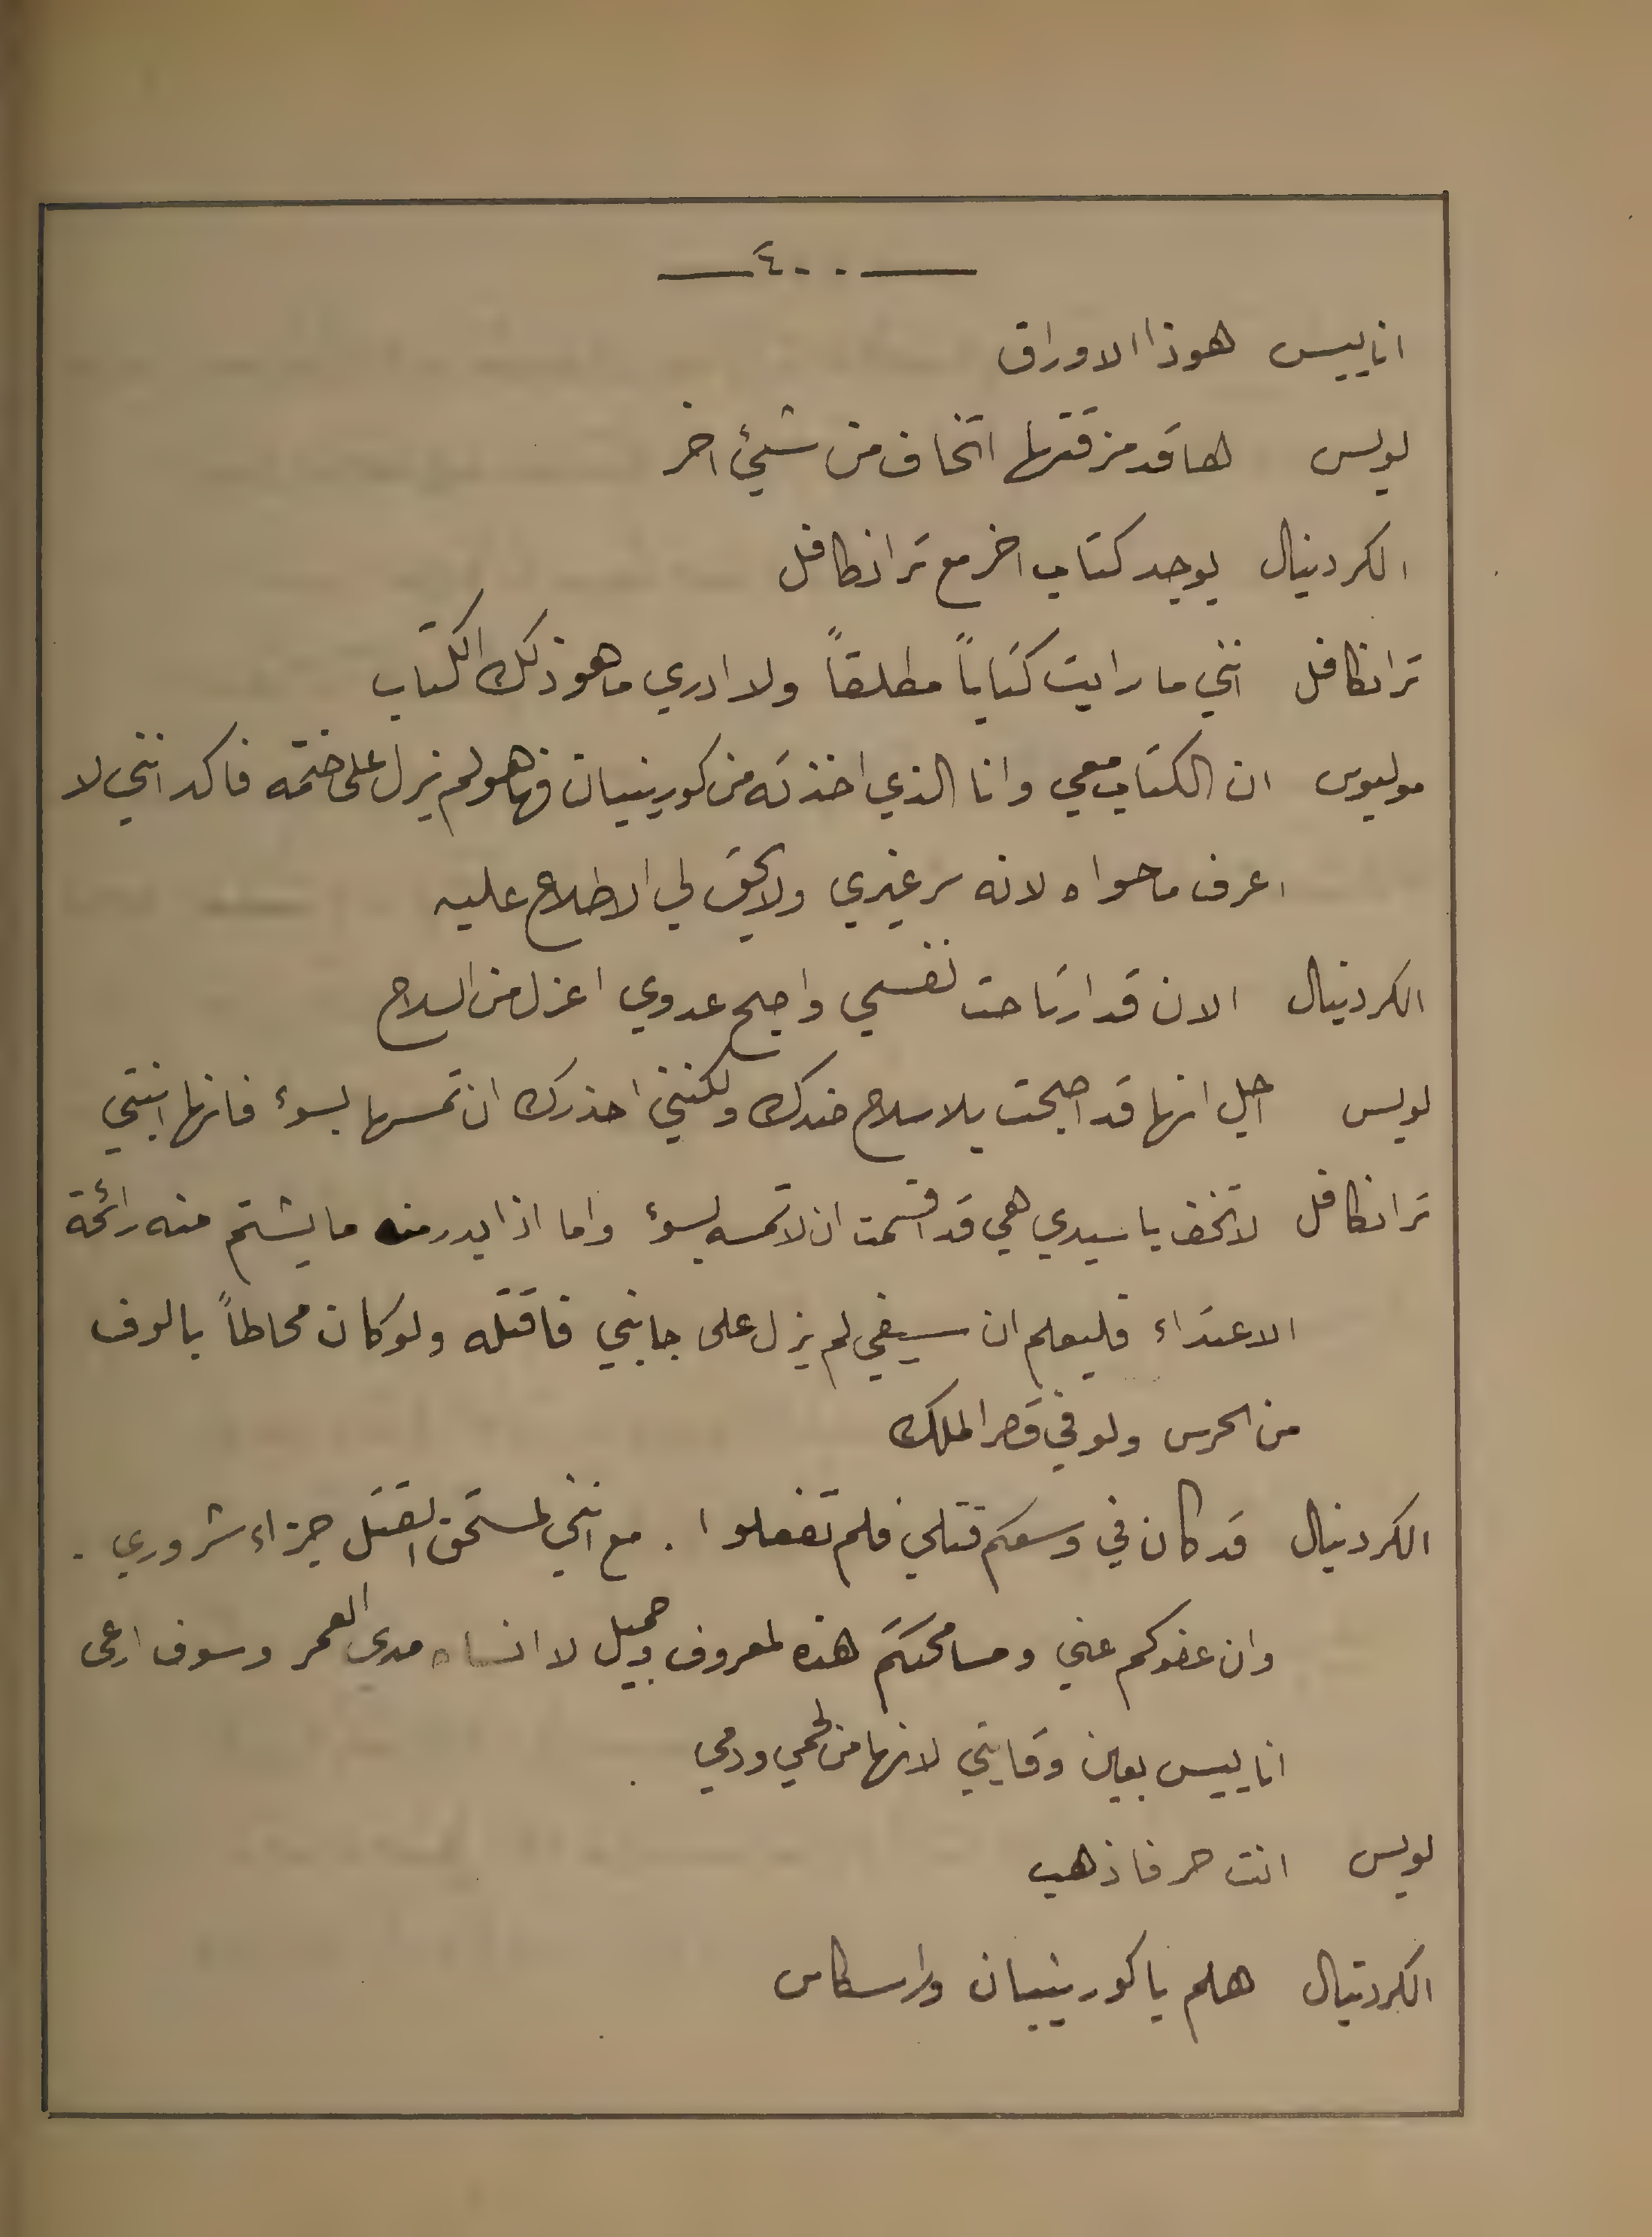 ٤٠٠
اناييس هوذا الاوراق
لويس ها قد مزقتها اتخاف من شيئ اخر
الكردينال يوجد كتاب اخر مع ترانكافل
ترانكافل انني ما رايت كتاباً مطلقاً ولا ادري ما هو ذلك الكتاب
موليوس ان الكتاب معي وانا الذي اخذته من كورينيان فها هو لم يزل على ختمه فاكد انني لا
اعرف ما حواه لانه سر غيري ولا يحق لي الاطلاع عليه
الكردينال الان قد ارتاحت نفسي واصبح عدوي اعزل من السلاح
لويس اجل انها قد اصبحت بلا سلاح ضدك ولكنني احذرك ان تمسها بسوء فانها ابنتي
ترانكافل لا تخف يا سيدي هي قد اقسمت ان لا تمسه بسوء واما اذا بدر منه ما يشتم منه رائحة
الاعتداء فليعلم ان سيفي لم يزل على جانبي فاقتله ولو كان محاطاً بالوف
من الحرس ولو في قصر الملك
الكردينال قد كان في وسعكم قتلي فلم تفعلوا . مع انني لمستحق القتل جزاء شروري .
وان عفوكم عني ومسامحتكم هذه لمعروف وجميل لا انساه مدى العمر وسوف ارعى
اناييس بعين وقايتي لانها من لحمي ودمي .
لويس انت حر فاذهب
الكردينال هلم يا كورينيان وراسكاس